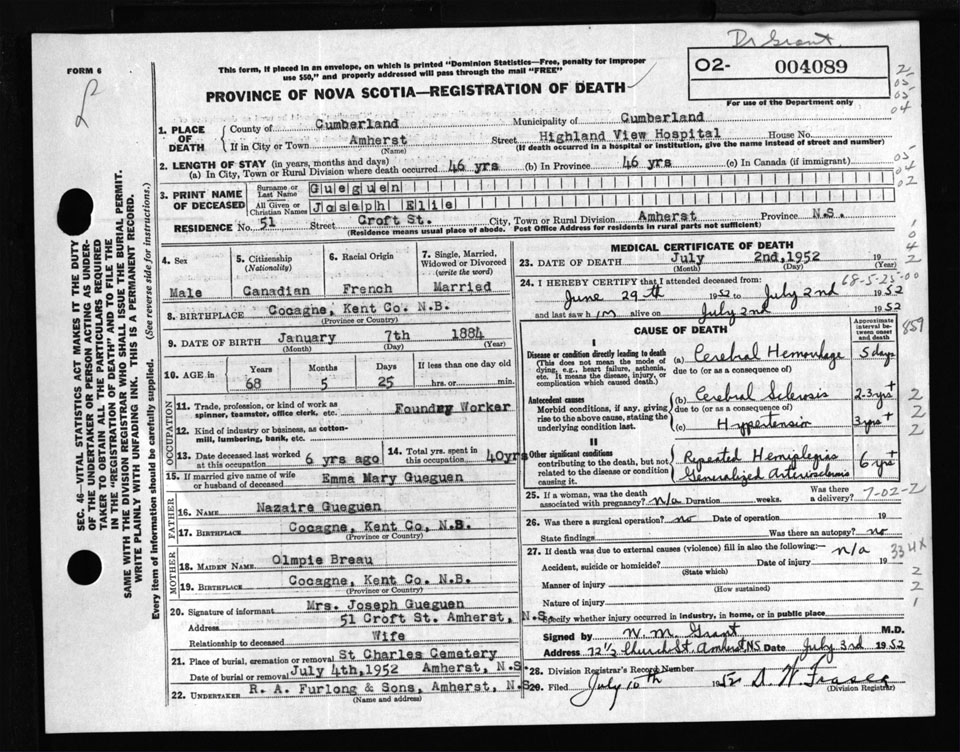 Dr Grant.
FORM 6
This form, if placed in an envelope, on which is printed "Dominion Statistics—Free, penalty for improper use $50," and properly addressed will pass through the mail "FREE"
O2- 004089
For use of the Department only
PROVINCE OF NOVA SCOTIA—REGISTRATION OF DEATH
2
05
05
04
SEC. 46—VITAL STATISTICS ACT MAKES IT THE DUTY OF THE UNDERTAKER OR PERSON ACTING AS UNDERTAKER TO OBTAIN ALL THE PARTICULARS REQUIRED IN THE "REGISTRATION OF DEATH" AND TO FILE THE SAME WITH THE DIVISION REGISTRAR WHO SHALL ISSUE THE BURIAL PERMIT.
WRITE PLAINLY WITH UNFADING INK. THIS IS A PERMANENT RECORD.
Every item of information should be carefully supplied. (See reverse side for instructions.)
1. PLACE OF DEATH
County of Cumberland Municipality of Cumberland
If in City or Town Amherst (Name) Street Highland View Hospital House No.
(If death occurred in a hospital or institution, give the name instead of street and number)
2. LENGTH OF STAY (in years, months and days)
(a) In City, Town or Rural Division where death occurred 46 yrs (b) In Province 46 yrs (c) In Canada (if immigrant)
3. PRINT NAME OF DECEASED
Surname or Last Name Gueguen
All Given or Christian Names Joseph Elie
RESIDENCE No. 51 Street Croft St. City, Town or Rural Division Amherst Province N.S.
(Residence means usual place of abode. Post Office Address for residents in rural parts not sufficient)
4. Sex Male
5. Citizenship (Nationality) Canadian
6. Racial Origin French
7. Single, Married, Widowed or Divorced (write the word) Married
8. BIRTHPLACE Cocagne, Kent Co. N.B.
(Province or Country)
9. DATE OF BIRTH January 7th 1884
(Month) (Day) (Year)
10. AGE in Years 68 Months 5 Days 25 If less than one day hrs. or min.
OCCUPATION
11. Trade, profession or kind of work as spinner, teamster, office clerk, etc. Foundry Worker
12. Kind of industry or business, as cotton-mill, lumbering, bank, etc.
13. Date deceased last worked at this occupation 6 yrs ago
14. Total yrs. spent in this occupation 40yrs
15. If married give name of wife or husband of deceased Emma Mary Gueguen
FATHER
16. NAME Nazaire Gueguen
17. BIRTHPLACE Cocagne, Kent Co. N.B.
(Province or Country)
MOTHER
18. MAIDEN NAME Olmpie Breau
19. BIRTHPLACE Cocagne, Kent Co. N.B.
(Province or Country)
20. Signature of informant Mrs. Joseph Gueguen
Address 51 Croft St. Amherst, N.S.
Relationship to deceased Wife
21. Place of burial, cremation or removal St Charles Cemetery
Date of burial or removal July 4th, 1952 Amherst, N.S.
22. UNDERTAKER R. A. Furlong & Sons, Amherst, N.S
(Name and address)
MEDICAL CERTIFICATE OF DEATH
23. DATE OF DEATH July 2nd, 1952 19
(Month) (Day) (Year)
24. I HEREBY CERTIFY that I attended deceased from: 68-5-25-00
June 29th 1952 to July 2nd 1952
and last saw him alive on July 2nd 1952
CAUSE OF DEATH
Approximate interval between onset and death
859
I
Disease or condition directly leading to death
(This does not mean the mode of dying, e.g., heart failure, asthenia, etc. It means the disease, injury, or complication which caused death.)
(a) Cerebral Hemorrhage 5 days
due to (or as a consequence of)
Antecedent causes
Morbid conditions, if any, giving rise to the above cause, stating the underlying condition last.
(b) Cerebral Sclerosis 2-3 yrs +
due to (or as a consequence of)
(c) Hypertension 3 yrs +
II
Other significant conditions contributing to the death, but not related to the disease or condition causing it.
Repeated Hemiplegias
Generalized Arteriosclerosis 6 yrs +
25. If a woman, was the death associated with pregnancy? n/a Duration weeks. Was there a delivery? 7-02-2
26. Was there a surgical operation? no Date of operation 19
State findings Was there an autopsy? no
27. If death was due to external causes (violence) fill in also the following:— n/a 334x
Accident, suicide or homicide? (State which) Date of injury 19
Manner of injury (How sustained)
Nature of injury
Specify whether injury occurred in industry, in home, or in public place
Signed by W. M. Grant M.D.
Address 72 1/2 Church St. Amherst, NS Date July 3rd 1952
28. Division Registrar's Record Number
29. Filed July 10th 1952 D. W. Fraser
(Division Registrar)